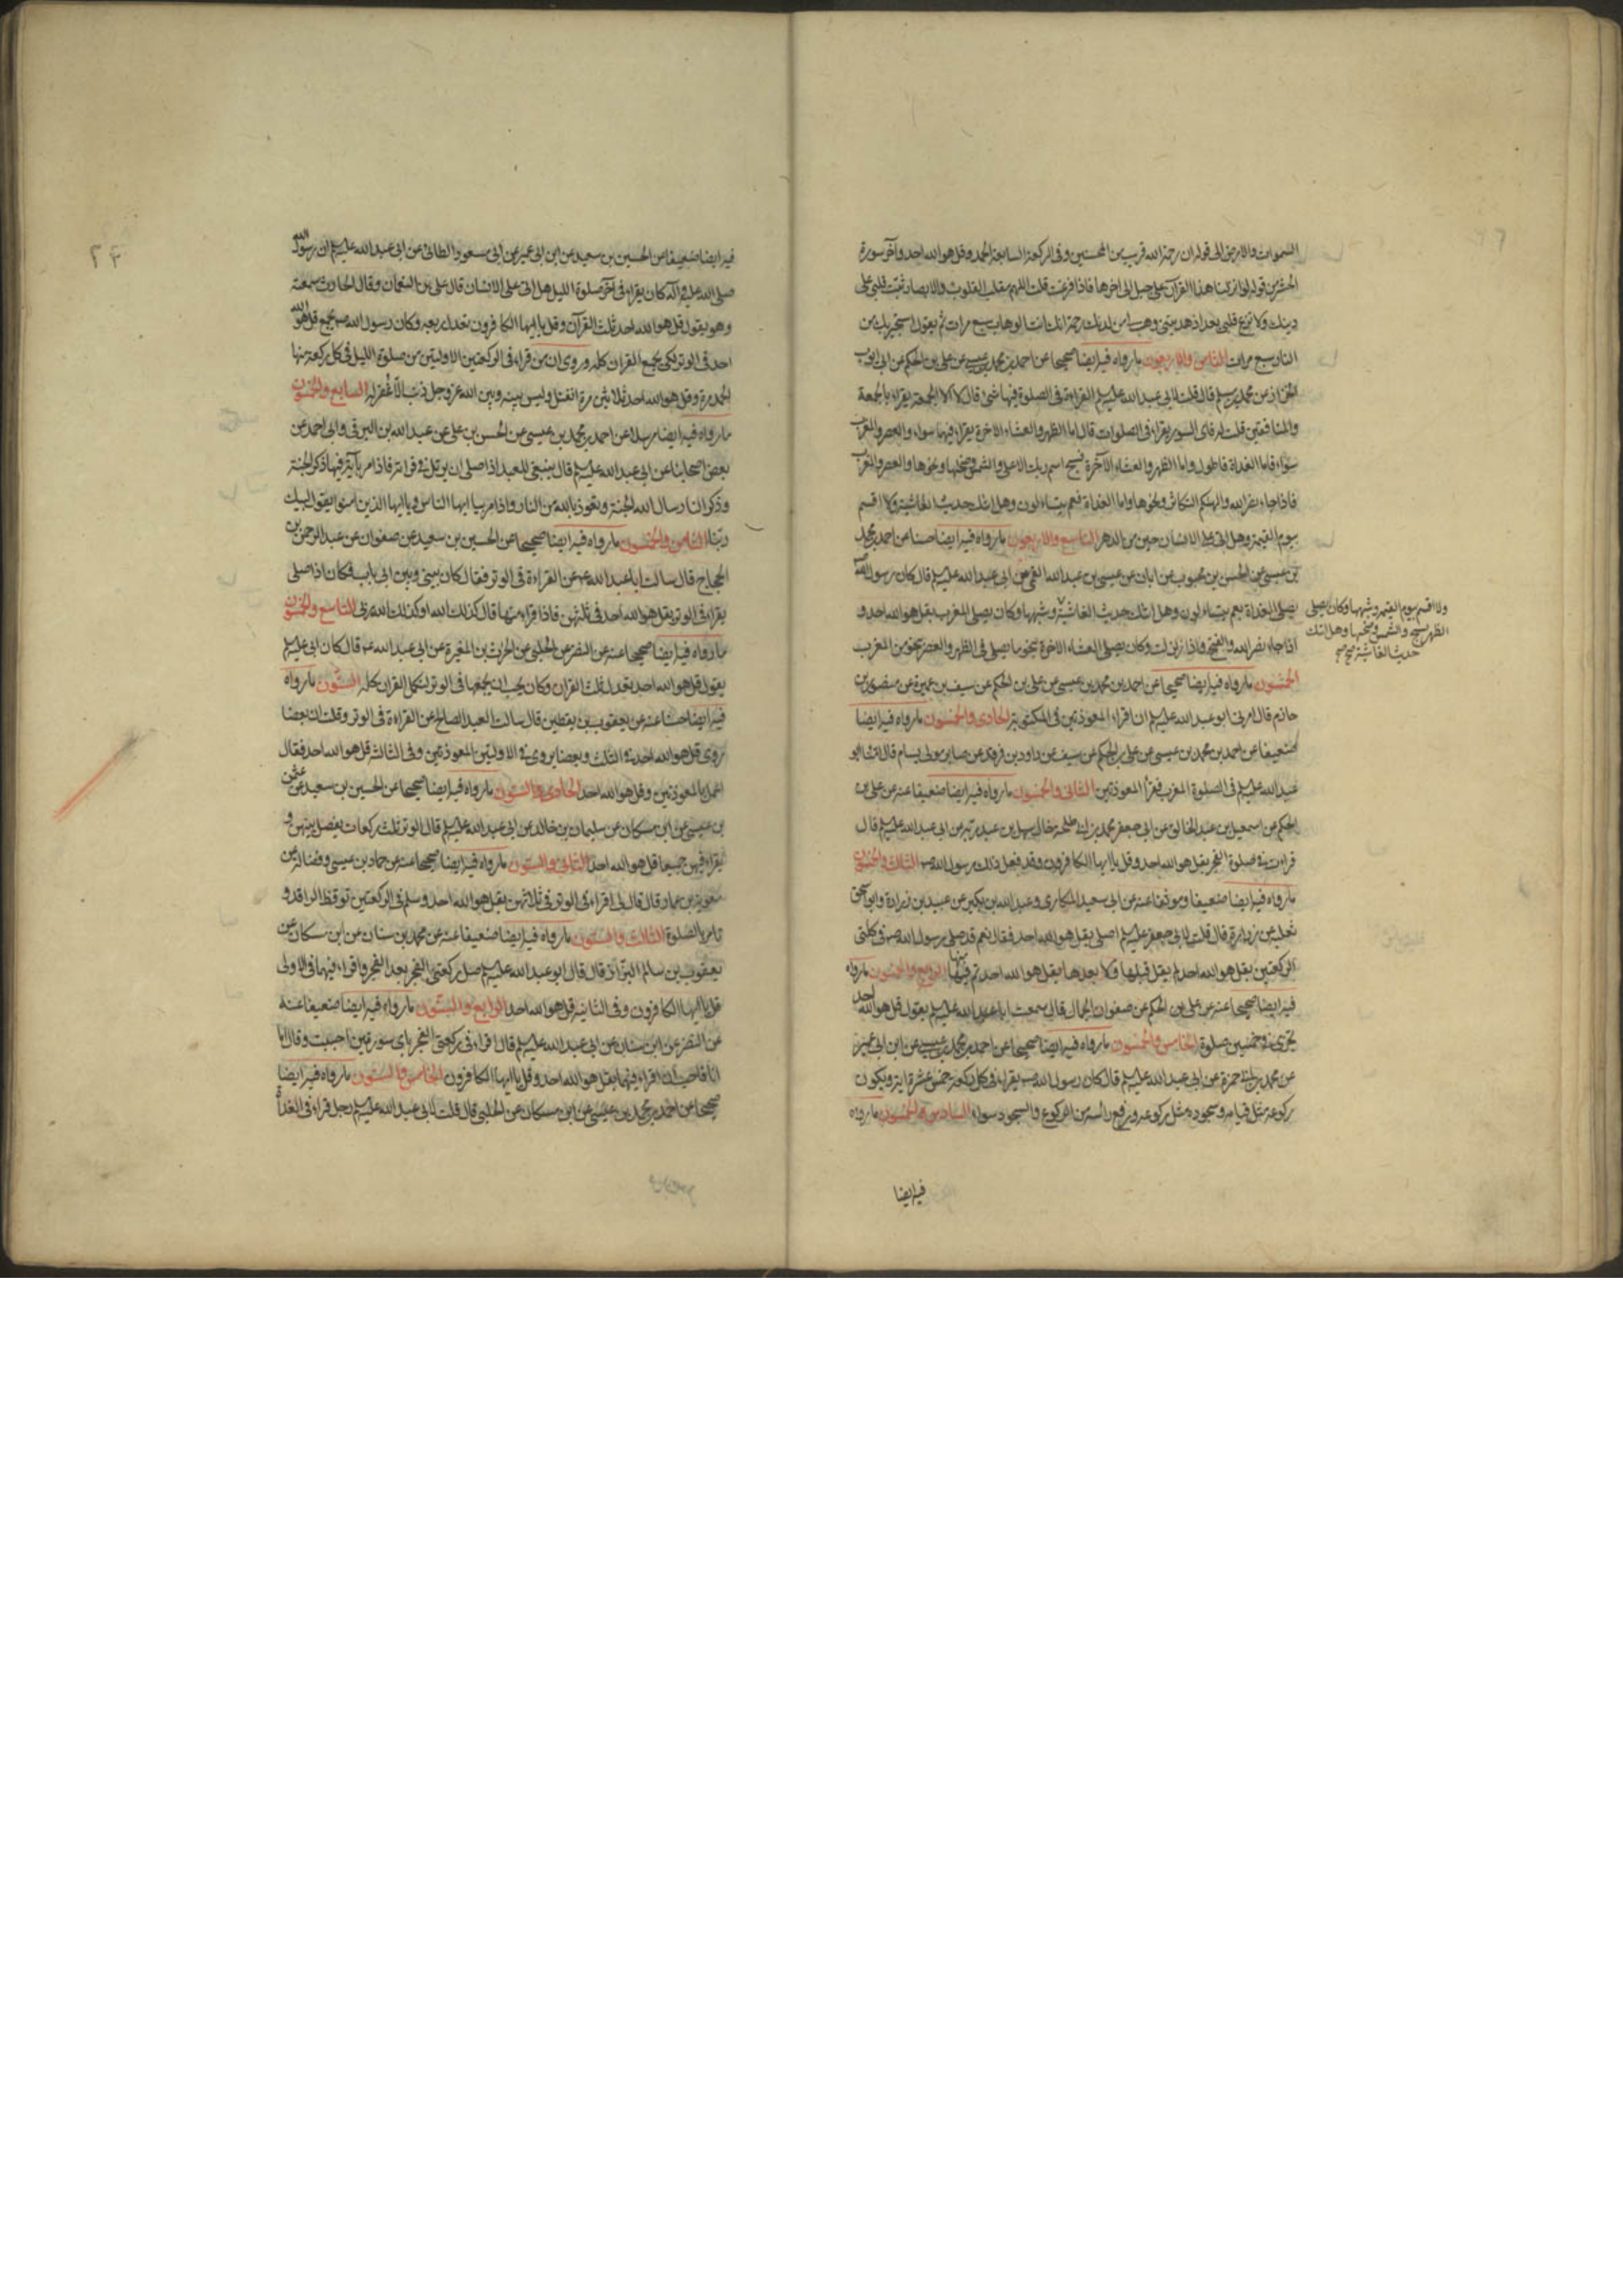 السموات والارض الى قوله ان رحمة الله قريب من المحسنين وفى الركعة السابعة الحمد وقل هو الله احد وآخر سورة
الحشر من قوله لو انزلنا هذا القرآن على جبل الى اخرها فاذا فرغت قلت اللهم مقلب القلوب والابصار ثبت قلبى على
دينك ولا تزغ قلبى بعد اذ هديتنى وهب لى من لدنك رحمة انك انت الوهاب سبع مرات ثم يقول استجير بالله من
النار سبع مرات الثامن والاربعون ما رواه فيه ايضا صحيحا عن احمد بن محمد بن عيسى عن على بن الحكم عن ابى ايوب
الخزاز عن محمد بن مسلم قال قلت لابى عبد الله عليه السلم القراءة فى الصلوة فيها شئ قال لا الا الجمعة يقراء بالجمعة
والمنافقين قلت له فاى السور يقراء فى الصلوات قال اما الظهر والعشاء الاخرة يقراء فيهما سواء والعصر والمغرب
سواء فاما الغداة فاطول واما الظهر والعشاء الآخرة فسبح اسم ربك الاعلى والشمس وضحيها ونحوها والعصر والمغرب
فاذا جاء نصر الله والهيكم التكاثر ونحوها واما الغداة فعم يتساءلون وهل اتيك حديث الغاشية ولا اقسم
بيوم القيمة وهل اتى على الانسان حين من الدهر التاسع والاربعون ما رواه فيه ايضا حسنا عن احمد بن محمد
بن عيسى عن الحسن بن محبوب عن ابان عن عيسى بن عبد الله القمى عن ابى عبد الله عليه السلم قال كان رسول الله ص
يصلى الغداة بعم يتساءلون وهل اتيك حديث الغاشية وشبهها وكان يصلى المغرب بقل هو الله احد و
اذا جاء نصر الله والفتح واذا زلزلت وكان يصلى العشاء الاخرة بنحو ما يصلى فى الظهر والعصر بنحو من المغرب
الخمسون ما رواه فيه ايضا صحيحا عن احمد بن محمد بن عيسى عن على بن الحكم عن سيف بن عميرة عن منصور بن
حازم قال امرنى ابو عبد الله عليه السلم ان اقراء المعوذتين فى المكتوبة الحادى والخمسون ما رواه فيه ايضا
ضعيفا عن احمد بن محمد بن عيسى عن على بن الحكم عن سيف عن داود بن فرقد عن صابر مولى بسام قال امنا ابو
عبد الله عليه السلم فى الصلوة المغرب فقرأ المعوذتين الثانى والخمسون ما رواه فيه ايضا ضعيفا عنه عن على بن
الحكم عن اسمعيل بن عبد الخالق عن ابى جعفر محمد بن ابى طلحة خال سهل بن عبد ربه عن ابى عبد الله عليه السلم قال
قراءت فى صلوة الفجر بقل هو الله احد وقل يا ايها الكافرون وقد فعل ذلك رسول الله ص الثالث والخمسون
ما رواه فيه ايضا ضعيفا وموثقا عنه عن ابى سعيد المكارى وعبد الله بن بكير عن عبيد بن زرارة وابو اسحق
ثعلبه عن زرارة قال قلت لابى جعفر عليه السلم اصلى بقل هو الله احد فقال نعم قد صلى رسول الله ص فى كلتى
الركعتين بقل هو الله احد لم يقل قبلها ولا بعدها بقل هو الله احد تم فيها منها الرابع والخمسون ما رواه
فيه ايضا صحيحا عنه عن على بن الحكم عن صفوان الجمال قال سمعت ابا عبد الله عليه السلم يقول قل هو الله احد
يجزى فى خمسين صلوة الخامس والخمسون ما رواه فيه ايضا صحيحا عن احمد بن محمد بن عيسى عن ابن ابى عمير
عن محمد بن ابى حمزة عن ابى عبد الله عليه السلم قال كان رسول الله ص يقراء فى كل ركعة خمس عشرة اية ويكون
ركوعه مثل قيامه وسجوده مثل ركوعه ورفع راسه من الركوع والسجود سواء السادس والخمسون ما رواه
فيه ايضا
ولا اقسم بيوم القيمة وشبهها وكان يصلى
الظهر بسبح والشمس وضحيها وهل اتيك
حديث الغاشية صح
فيه ايضا ضعيفا عن الحسين بن سعيد عن ابن ابى عمير عن ابى مسعود الطائى عن ابى عبد الله عليه السلم ان رسول الله
صلى الله عليه وآله كان يقراء فى آخر صلوة الليل هل اتى على الانسان قال على بن النعمان وقال الحارث سمعته
وهو يقول قل هو الله احد ثلث القرآن وقل يا ايها الكافرون تعدل ربعه وكان رسول الله ص يجمع قل هو الله
احد فى الوتر لكى يجمع القران كله وروى ان من قراء فى الركعتين الاوليتين من صلوة الليل فى كل ركعة منها
الحمد مرة وقل هو الله احد ثلاثين مرة انفتل وليس بينه وبين الله عز وجل ذنب الا غفر له السابع والخمسون
ما رواه فيه ايضا مرسلا عن احمد بن محمد بن عيسى عن الحسن بن على عن عبد الله بن البرقى وابى احمد عن
بعض اصحابنا عن ابى عبد الله عليه السلم قال ينبغى للعبد اذا صلى ان يرتل فى قراءته فاذا مر بآية فيها ذكر الجنة
وذكر النار سال الله الجنة وتعوذ بالله من النار واذا مر بيا ايها الناس ويا ايها الذين امنوا يقول لبيك
ربنا الثامن والخمسون ما رواه فيه ايضا صحيحا عن الحسين بن سعيد عن صفوان عن عبد الرحمن بن
الحجاج قال سالت ابا عبد الله ع عن القراءة فى الوتر فقال كان بينى وبين ابى باب فكان اذا صلى
يقراء فى الوتر بقل هو الله احد فى ثلثهن فاذا قراء منها قال كذلك الله او كذلك الله ربى التاسع والخمسون
ما رواه فيه ايضا صحيحا عنه عن النضر عن الحلبى عن الحرث بن المغيرة عن ابى عبد الله ع قال كان ابى عليه السلم
يقول قل هو الله احد يعدل ثلث القران وكان يحب ان يجمعها فى الوتر ليكمل القران كله الستون ما رواه
فيه ايضا عنه عن يعقوب بن يقطين قال سالت العبد الصالح عن القراءة فى الوتر وقلت ان بعضا
روى قل هو الله احد فى الثلث وبعضا يروى فى الاوليين المعوذتين وفى الثالثة قل هو الله احد فقال
اعمل بالمعوذتين وقل هو الله احد الحادى والستون ما رواه فيه ايضا صحيحا عن الحسين بن سعيد عن عثمن
بن عيسى عن ابن مسكان عن سليمان بن خالد عن ابى عبد الله عليه السلم قال الوتر ثلث ركعات يفصل بينهن و
يقراء فيهن جميعا قل هو الله احد الثانى والستون ما رواه فيه ايضا صحيحا عنه عن حماد بن عيسى وفضالة عن
معوية بن عمار قال قال لى اقراء فى الوتر فى ثلاثهن بقل هو الله احد وسلم فى الركعتين توقظ الراقد و
تامر بالصلوة الثالث والستون ما رواه فيه ايضا ضعيفا عنه عن محمد بن سنان عن ابن مسكان عن
يعقوب بن سالم البزاز قال قال ابو عبد الله عليه السلم صل ركعتى الفجر بعد الفجر واقراء فيهما فى الاولى
قل يا ايها الكافرون وفى الثانية قل هو الله احد الرابع والستون ما رواه فيه ايضا ضعيفا عنه
عن النضر عن ابن سنان عن ابى عبد الله عليه السلم قال اقراء فى ركعتى الفجر باى سورتين احببت وقال اما
انا فاحب ان اقراء فيهما بقل هو الله احد وقل يا ايها الكافرون الخامس والستون ما رواه فيه ايضا
صحيحا عن احمد بن محمد بن عيسى عن ابن مسكان عن الحلبى قال قلت لابى عبد الله عليه السلم رجل قراء فى الغداة